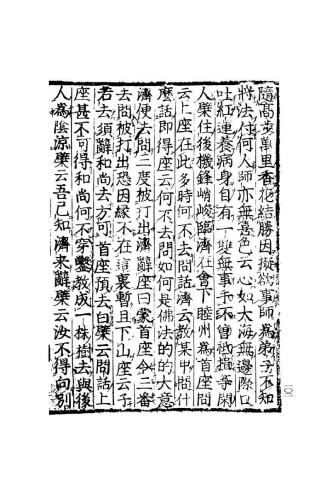 隨高步萬里香花結勝因擬欲事師為弟子不知
將法付何人師亦無喜色云心如大海無邊際口
吐紅蓮養病身自有一雙無事手不曾祗揖等閑
人檗住後機鋒峭峻臨濟在會下睦州為首座問
云上座在此多時何不去問話濟云教某甲問什
麼話即得座云何不去問如何是佛法的的大意
濟便去問三度被打出濟辭座曰蒙首座令三番
去問被打出恐因緣不在這裏暫且下山座云子
若去須辭和尚去方可首座預去白檗云問話上
座甚不可得和尚何不穿鑿教成一株樹去與後
人為陰涼檗云吾已知濟來辭檗云汝不得向別
101